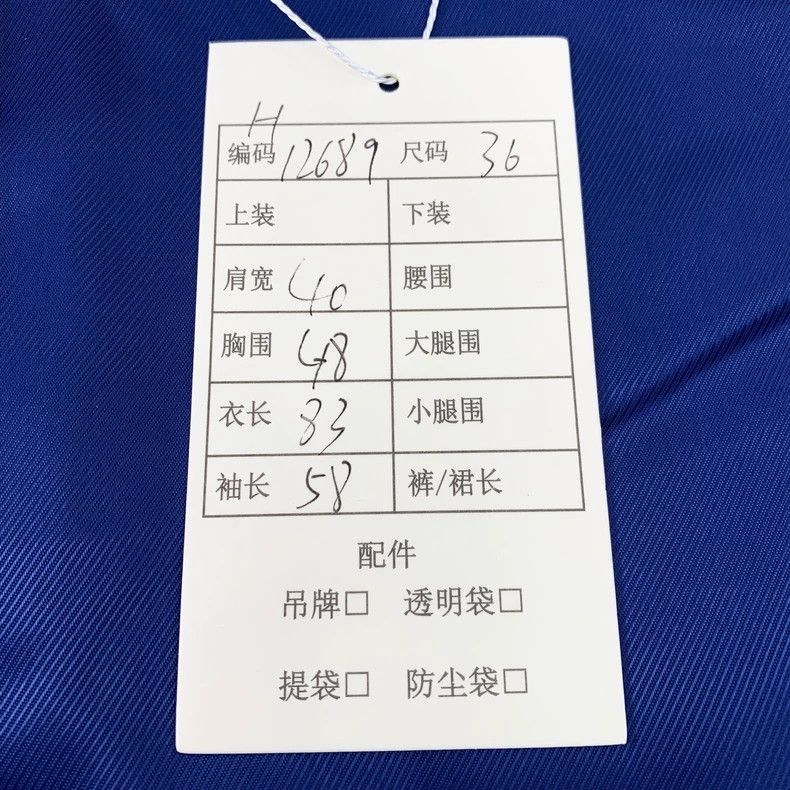 H
编码 12689 尺码 36
上装 下装
肩宽 40 腰围
胸围 48 大腿围
衣长 83 小腿围
袖长 58 裤/裙长
配件
吊牌□ 透明袋□
提袋□ 防尘袋□